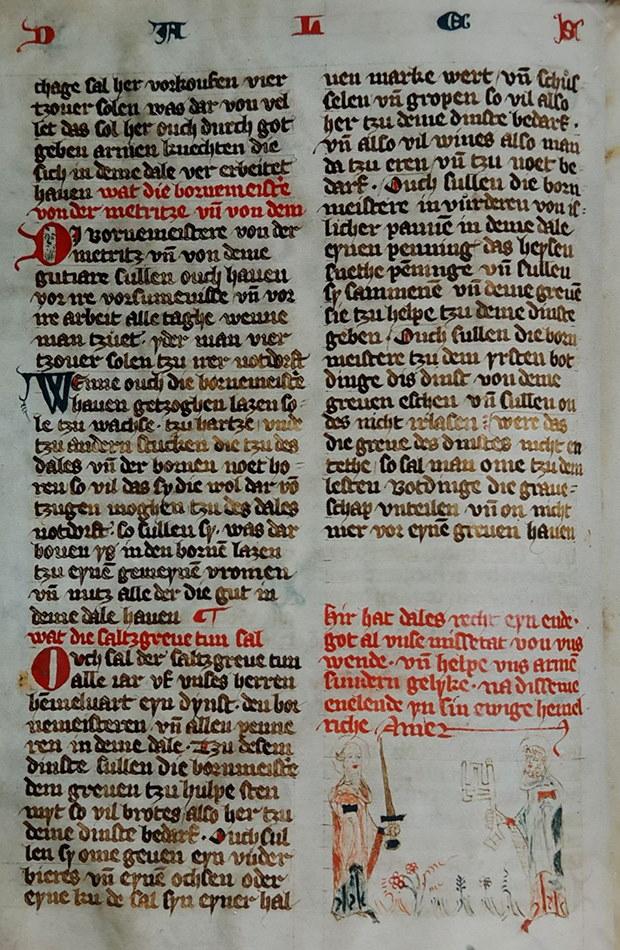 D A L E N
chage sal her vorkoufen vier
tzouer solen was dar von vel
let das sol her ouch durch got
geben armen knechten die
sich in deme dale ver erbeitet
hauen wat die bornemeist'e
von der metritze vn̄ von dem
DJ bornemeistere von der
metritz vn̄ von deme
gutiare sullen ouch hauen
vor ire vorsumenisse vn̄ vor
ire arbeit alle taghe wenne
man tzuet· yder man vier
tzouer solen tzu irer notdorft
WEnne ouch die bornemeist'e
hauen getzoghen lazen so-
le tzu wachse· tzu hartze / vnde
tzu andern stucken die tzu des
dales vn̄ der bornen noet ho-
ren so vil das sy die wol dar vō
tzugen moghen tzu des dales
notdorft· so sullen sy· was dar
bouen ys in den bornē lazen
tzu eynē gemeynē vromen
vn̄ nutz alle der die gut in
deme dale hauen
wat die saltzgreue tun sal
Ouch sal der saltzgreue tun
alle iar vf vnses herren
hēmeluart eyn dynst· den bor
nemeisteren vn̄ allen penne
ren in deme dale· Tzu desem
dinste sullen die bornmeist'e
dem greuen tzu hulpe sten
myt so vil brotes also her tzu
deme dinste bedarf· Ouch sul
len sy ome geuen eyn vuder
bieres vn̄ eynē ochsen oder
eyne ku de sal syn eyner hal
uen marke wert vn̄ schus
selen vn̄ gropen so vil also
her tzu deme dinste bedarf·
vn̄ also vil wines also man
da tzu eren vn̄ tzu noet be-
darf· Ouch sullen die born
meistere in vurderen von is-
licher pannē in deme dale
eynen penning das heysen
suethe pēninge vn̄ sullen
sy sammenē vn̄ deme greuē
sie tzu helpe tzu deme dinste
geben· Ouch sullen die born
meistere tzu dem yrsten bot
dinge dis dinst von deme
greuen eschen vn̄ sullen on
des nicht irlasen· were das
die greue des dinstes nicht en
tethe / so sal man ome tzu dem
lesten votdinge die graue-
schap vnteilen vn̄ on nicht
mer vor eynē greuen hauen
Hir hat dales recht eyn ende·
got al vnse missetat von vns
wende· vn̄ helpe vns armē
sundern gelyke· na disseme
enelende yn sin ewige hemel
riche Amen